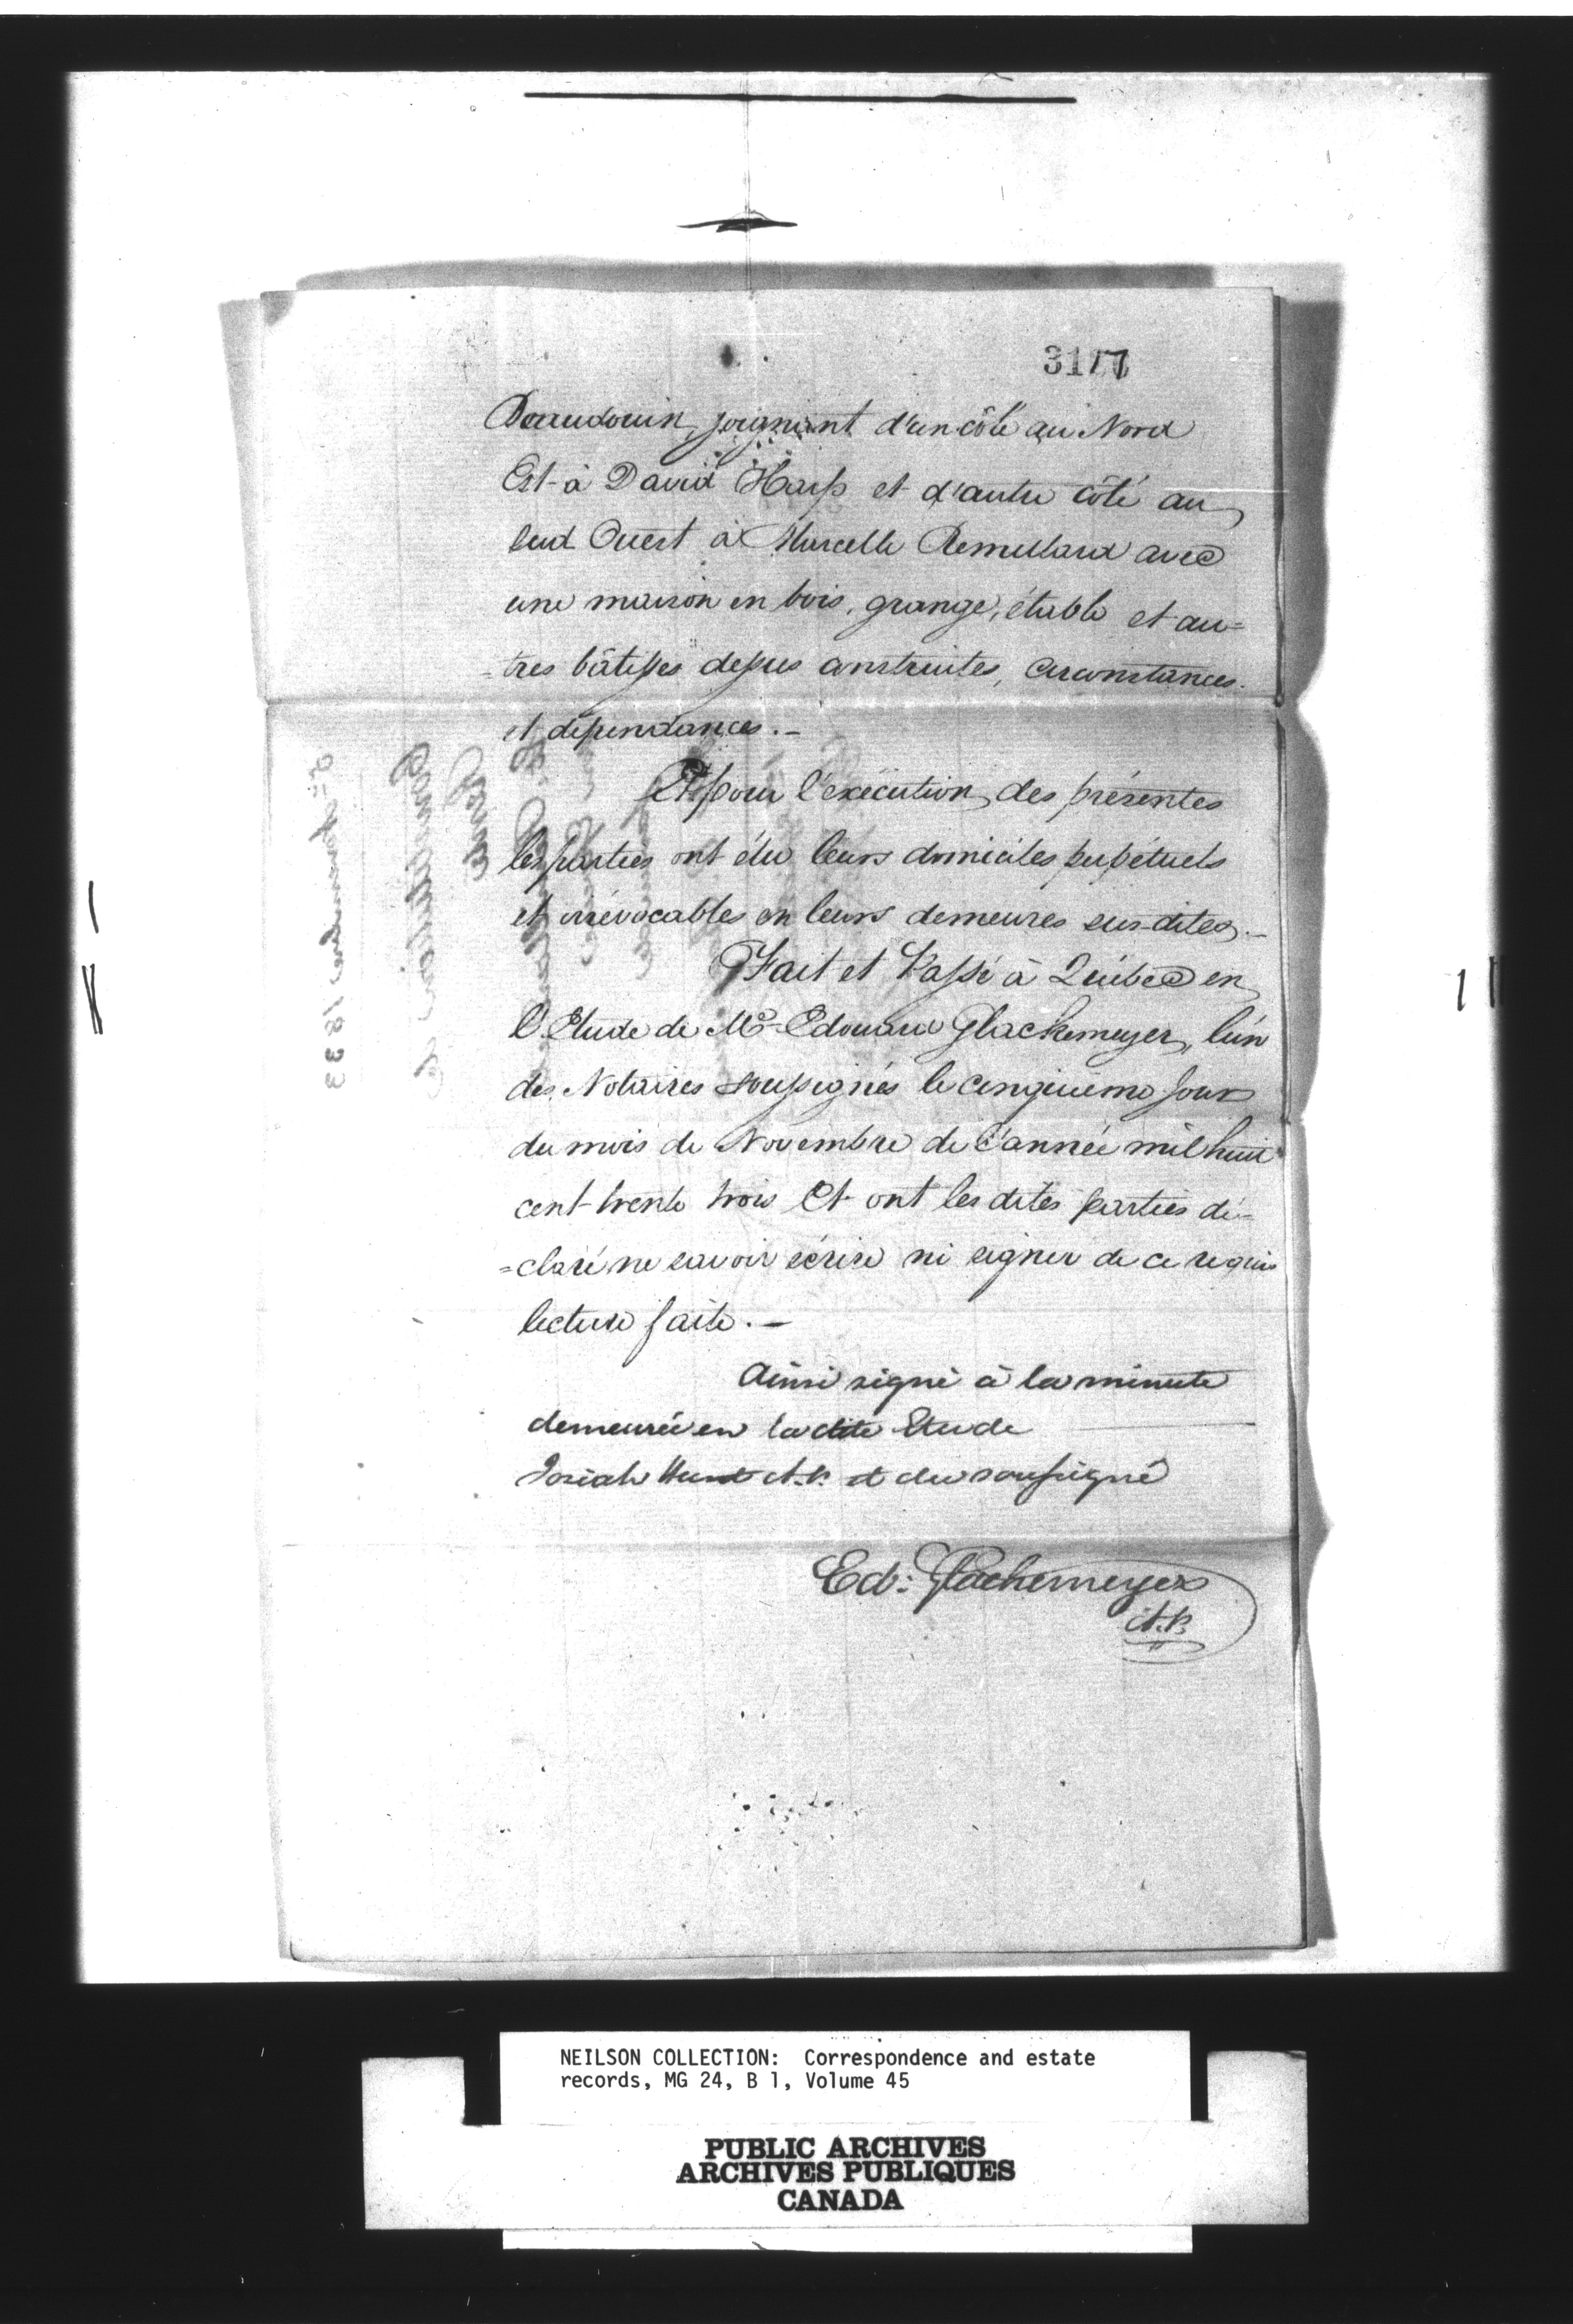 3117
Beaudouin, joignant d'un côté au Nord
Est à David Harp et d'autre côté au
sud Ouest à Marcelle Remillard avec
une maison en bois, grange, étable et au=
=tres bâtisses dessus construites, circonstances
et dépendances.—
Et pour l'exécution des présentes
les parties ont élu leurs domiciles perpétuels
et irrévocables en leurs demeures sus-dites.—
Fait et Passé à Québec en
l'Etude de Me Edouard Glackemeyer, l'un
des Notaires soussignés le cinquieme jour
du mois de Novembre de l'année mil huit
cent trente trois Et ont les dites parties dé=
=claré ne savoir écrire ni signer de ce requis
lecture faite.—
Ainsi signé à la minute
demeurée en la dite Etude
Josiah Hunt N.P. et du soussigné
Ed: Glackemeyer
N.P.
NEILSON COLLECTION: Correspondence and estate
records, MG 24, B 1, Volume 45
PUBLIC ARCHIVES
ARCHIVES PUBLIQUES
CANADA